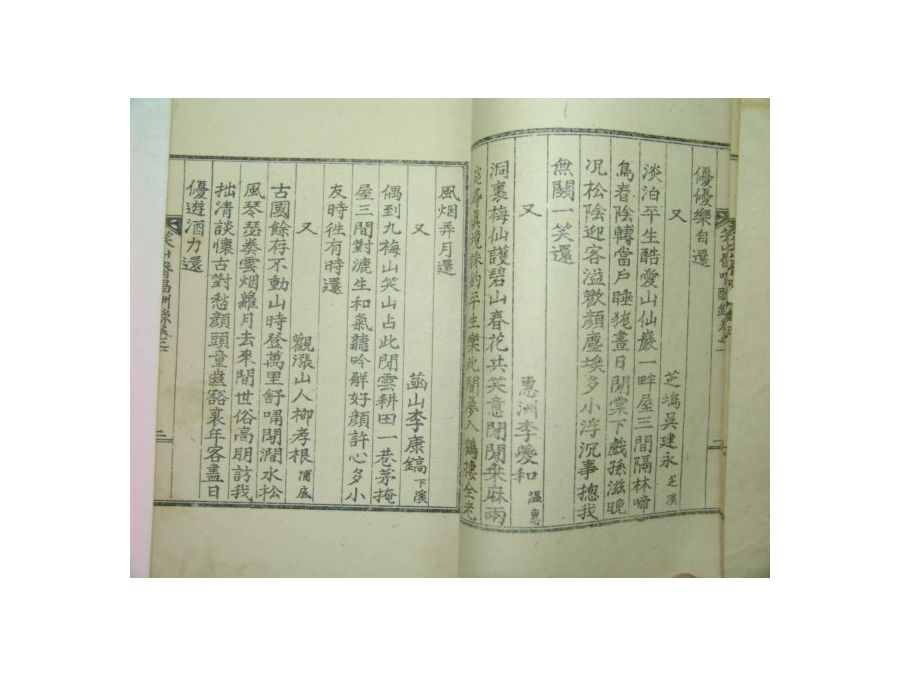 優優樂自還
又
芝塢吳建永 芝溪
淡泊平生酷愛山仙巖一畔屋三間隔林啼
鳥春陰轉當戶睡狵晝日閒棠下戲孫滋晩
況松陰迎客溢歡顔塵埃多小浮沉事摠我
無關一笑還
又
惠洲李夔和 溫惠
洞裏梅仙護碧山春花共笑意閒閒桑麻兩
眞境 平生樂此間夢入鶴樓
風烟弄月還
又
菡山李康鎬 下溪
偶到九梅山笑山占此閒雲耕田一巷茅掩
屋三間對漉生和氣聽吟解好顔許心多小
友時徃有時還
又
觀漲山人柳孝根 浦底
古國餘存不動山時登萬里舒嘯閒澗水松
風琴瑟奏雲烟蘿月去來閒世俗高朋訪我
拙清談懷古對愁顔頭童齒豁衰年客盡日
優遊酒力還
二